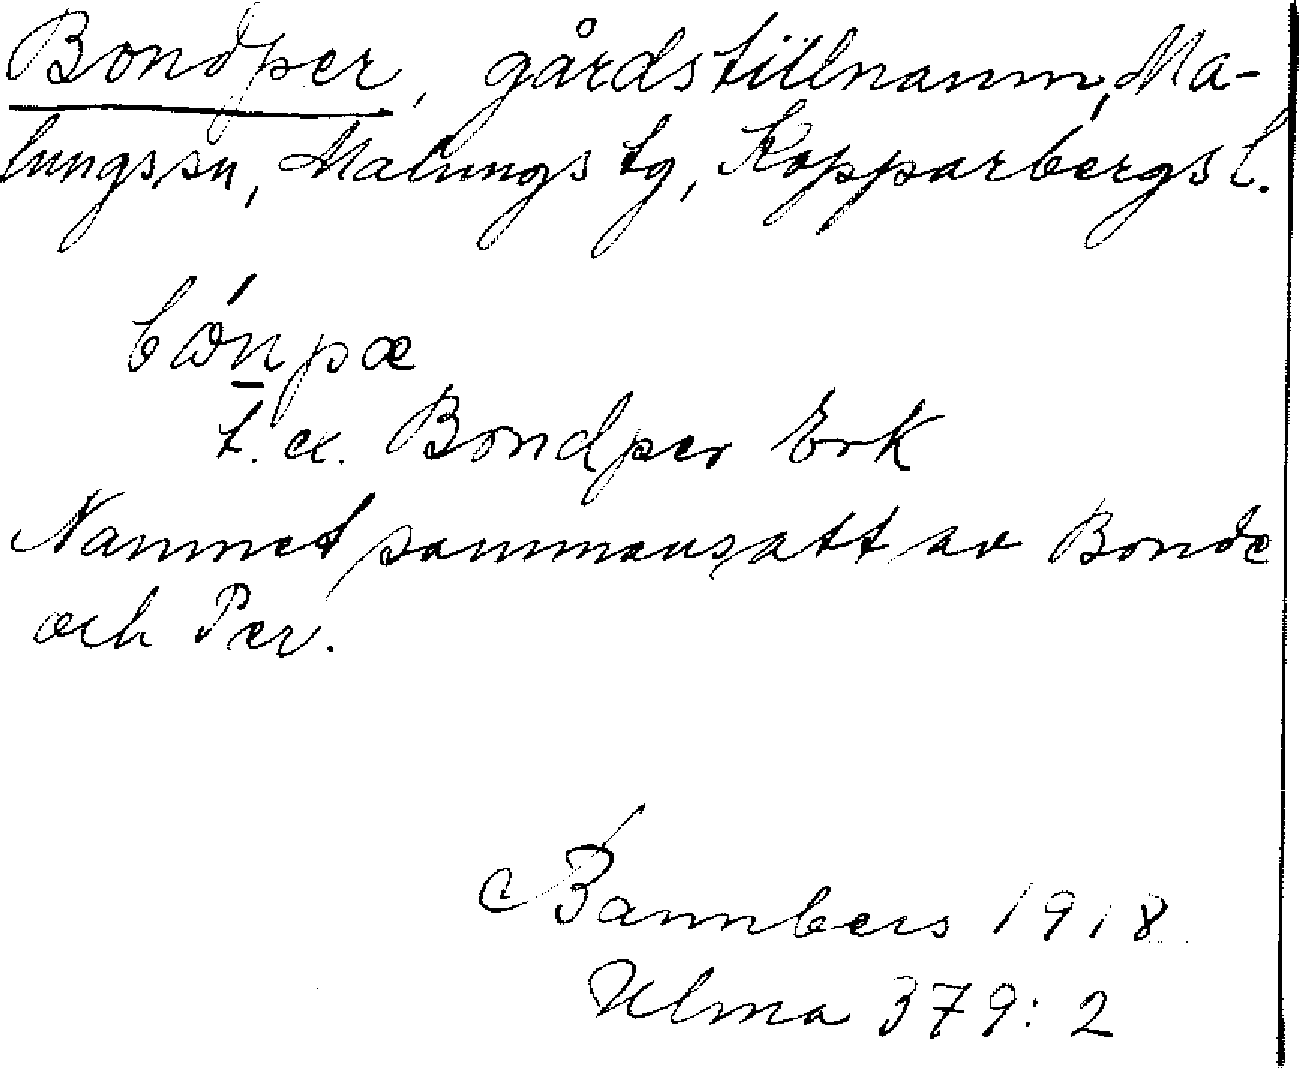 Bondper, gårdstillnamn, Ma-
lungs sn, Malungs tg, Kopparbergs l.
t. ex. Bondper Erk
Namnet sammansatt av Bonde
och Per.
Bannbers 1918
Ulma 379: 2